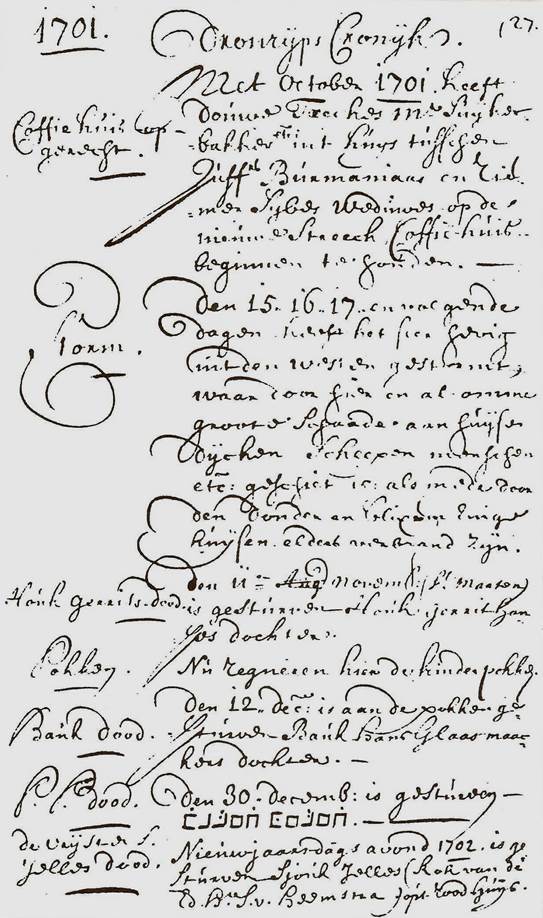 1701.
Dronryps Cronyk.
127.
Met October 1701 heeft
Coffiehuis op-
gerecht.
Douwe Feeckes Mr Suyker
-bakker int huys tusschen
Juffr Burmaniaas en Rie
-mer Sybes weduwes op de
nieuwe Streeck Coffie-huis
beginnen te houden. —
Storm.
Den 15. 16. 17. en volgende
dagen heeft het seer hevig
uit den westen gestormt,
waar door hier en al omme
groote Schaade aan huysen
Dycken Scheepen menschen
etc: geschiet is: als mede door
den Donder en Blixem
huysen elders verbrand zyn.
Hauk Gerrits dood.
Den 11en Aug Novemb: St. Marten
is gesturven Hauk Gerrit Jan
dochter.
Pokken.
Nu regneren hier de kinderpokken.
Bauk dood.
Den 12. dec: is aan de pokken ge-
sturven Bauk Hans Glaasmaac-
kers dochter. —
P. P. dood.
Den 30. decemb: is gesturven —
de vrijster S.
Jelles dood.
Nieuwjaarsdags avond 1702. is ge
sturven Sjoik Jelles (Kok van de
Ed. Hr S. v. Heemstra) opt Rood huys.